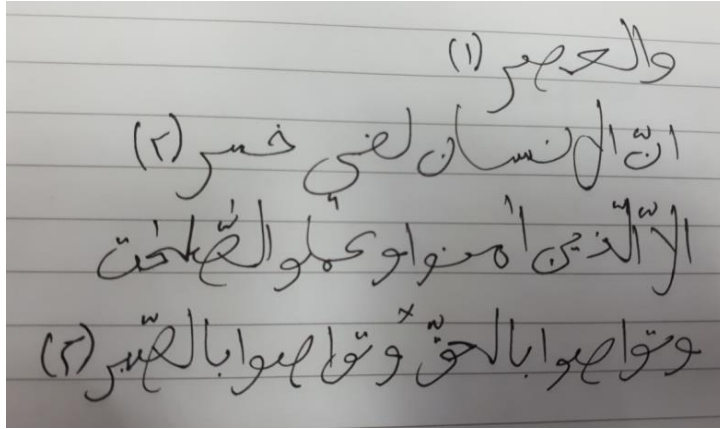 والعصر (١)
انّ الانسان لفي خسر (٢)
الاّ الّذين اٰمنوا وعملو الصّٰلحٰت
وتواصوا بالحقّ وتواصوا بالصّبر (٣)